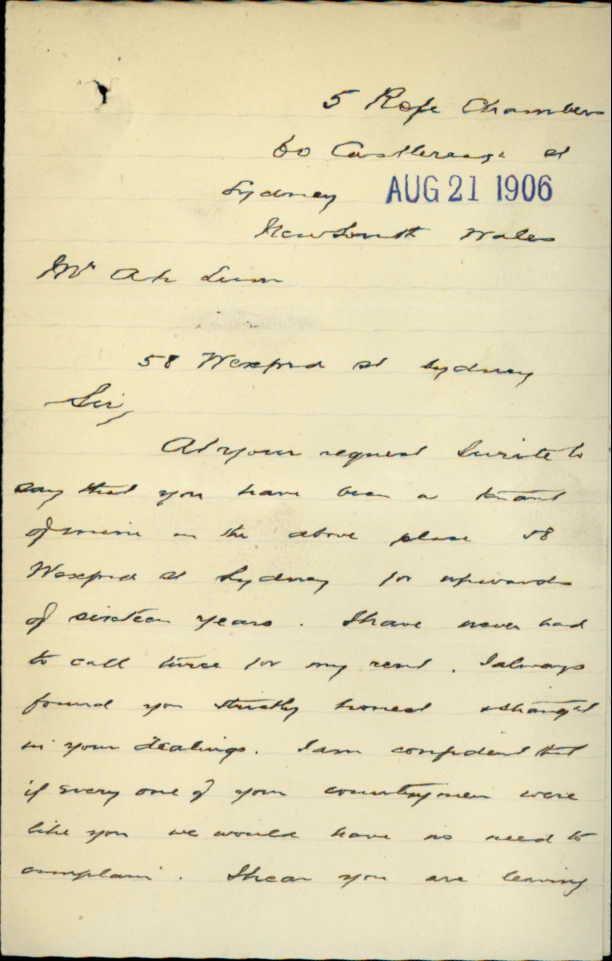 5 Rofe Chambers
60 Castlereagh St
Sydney AUG 21 1906
New South Wales
Mr Ah Lum
58 Wexford St Sydney
Sir,
At your request I write to
say that you have been a tenant
of mine in the above place 58
Wexford St Sydney for upwards
of sixteen years. I have never had
to call twice for my rent. I always
found you strictly honest & straight
in your dealings. I am confident that
if every one of your countrymen were
like you we would have no need to
complain. I hear you are leaving